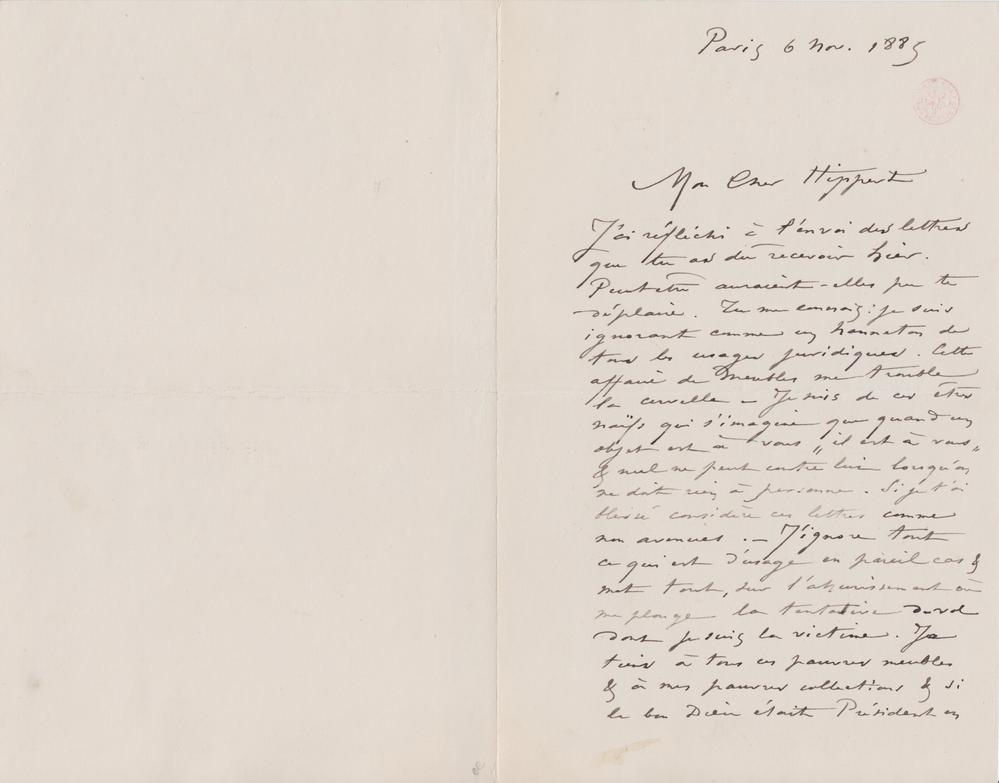 Paris 6 Nov. 1885
Mon Cher Hippert
J'ai réfléchi à l'envoi des lettres
que tu as du recevoir hier.
Peut être auraient-elles pu te
déplaire. Tu me connais : je suis
ignorant comme un hanneton de
tous les usages juridiques. Cette
affaire de Meubles me trouble
la cervelle – Je suis de ces êtres
naïfs qui s'imagine que quand un
objet est à vous „il est à vous"
& nul ne peut contre lui lorsqu'on
ne doit rien à personne. Si je t'ai
blessé considère ces lettres comme
non avenues . – J'ignore tout
ce qui est d'usage en pareil cas &
met tout, sur l'ahurissement où
me plonge la tentative de vol
dont je suis la victime. Je
tiens à tous ces pauvres meubles
& à mes pauvres collections & si
le bon Dieu était Président en